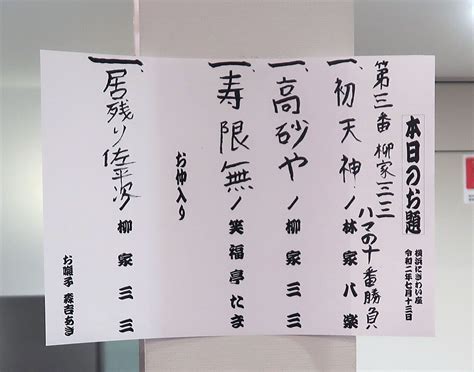 本日のお題
横浜にぎわい座
令和二年七月十三日
第三番 柳家三三
ハマの十番勝負
一、初天神 / 林家八楽
一、高砂や / 柳家三三
一、寿限無 / 笑福亭たま
お仲入り
一、居残り佐平次 / 柳家三三
お囃子 森吉あき